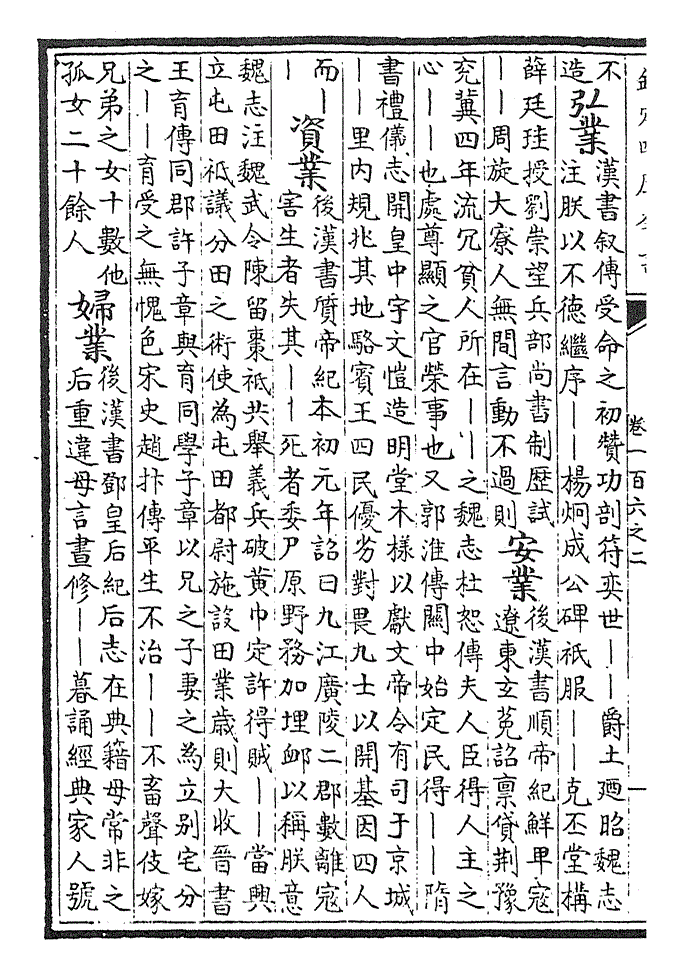 卷一百六之二
不
造
弘業
漢書叙傳受命之初贊功剖符奕世——爵土廼昭魏志
注朕以不德繼序——楊炯成公碑祇服——克丕堂構
薛廷珪授劉崇望兵部尚書制歷試
——周旋大寮人無間言動不過則
安業
後漢書順帝紀鮮卑寇
遼東玄菟詔禀貸荆豫
兖冀四年流冗貧人所在——之魏志杜恕傳夫人臣得人主之
心——也處尊顯之官榮事也又郭淮傳關中始定民得——隋
書禮儀志開皇中宇文愷造明堂木樣以獻文帝令有司于京城
——里内規兆其地駱賓王四民優劣對畏九士以開基因四人
而—
—
資業
後漢書質帝紀本初元年詔曰九江廣陵二郡數離寇
害生者失其——死者委尸原野務加埋䘏以稱朕意
魏志注魏武令陳留棗祗共舉義兵破黄巾定許得賊——當興
立屯田祗議分田之術使為屯田都尉施設田業歲則大收晉書
王育傳同郡許子章與育同學子章以兄之子妻之為立别宅分
之——育受之無愧色宋史趙抃傳平生不治——不畜聲伎嫁
兄弟之女十數他
孤女二十餘人
婦業
後漢書鄧皇后紀后志在典籍母常非之
后重違母言晝修——暮誦經典家人號